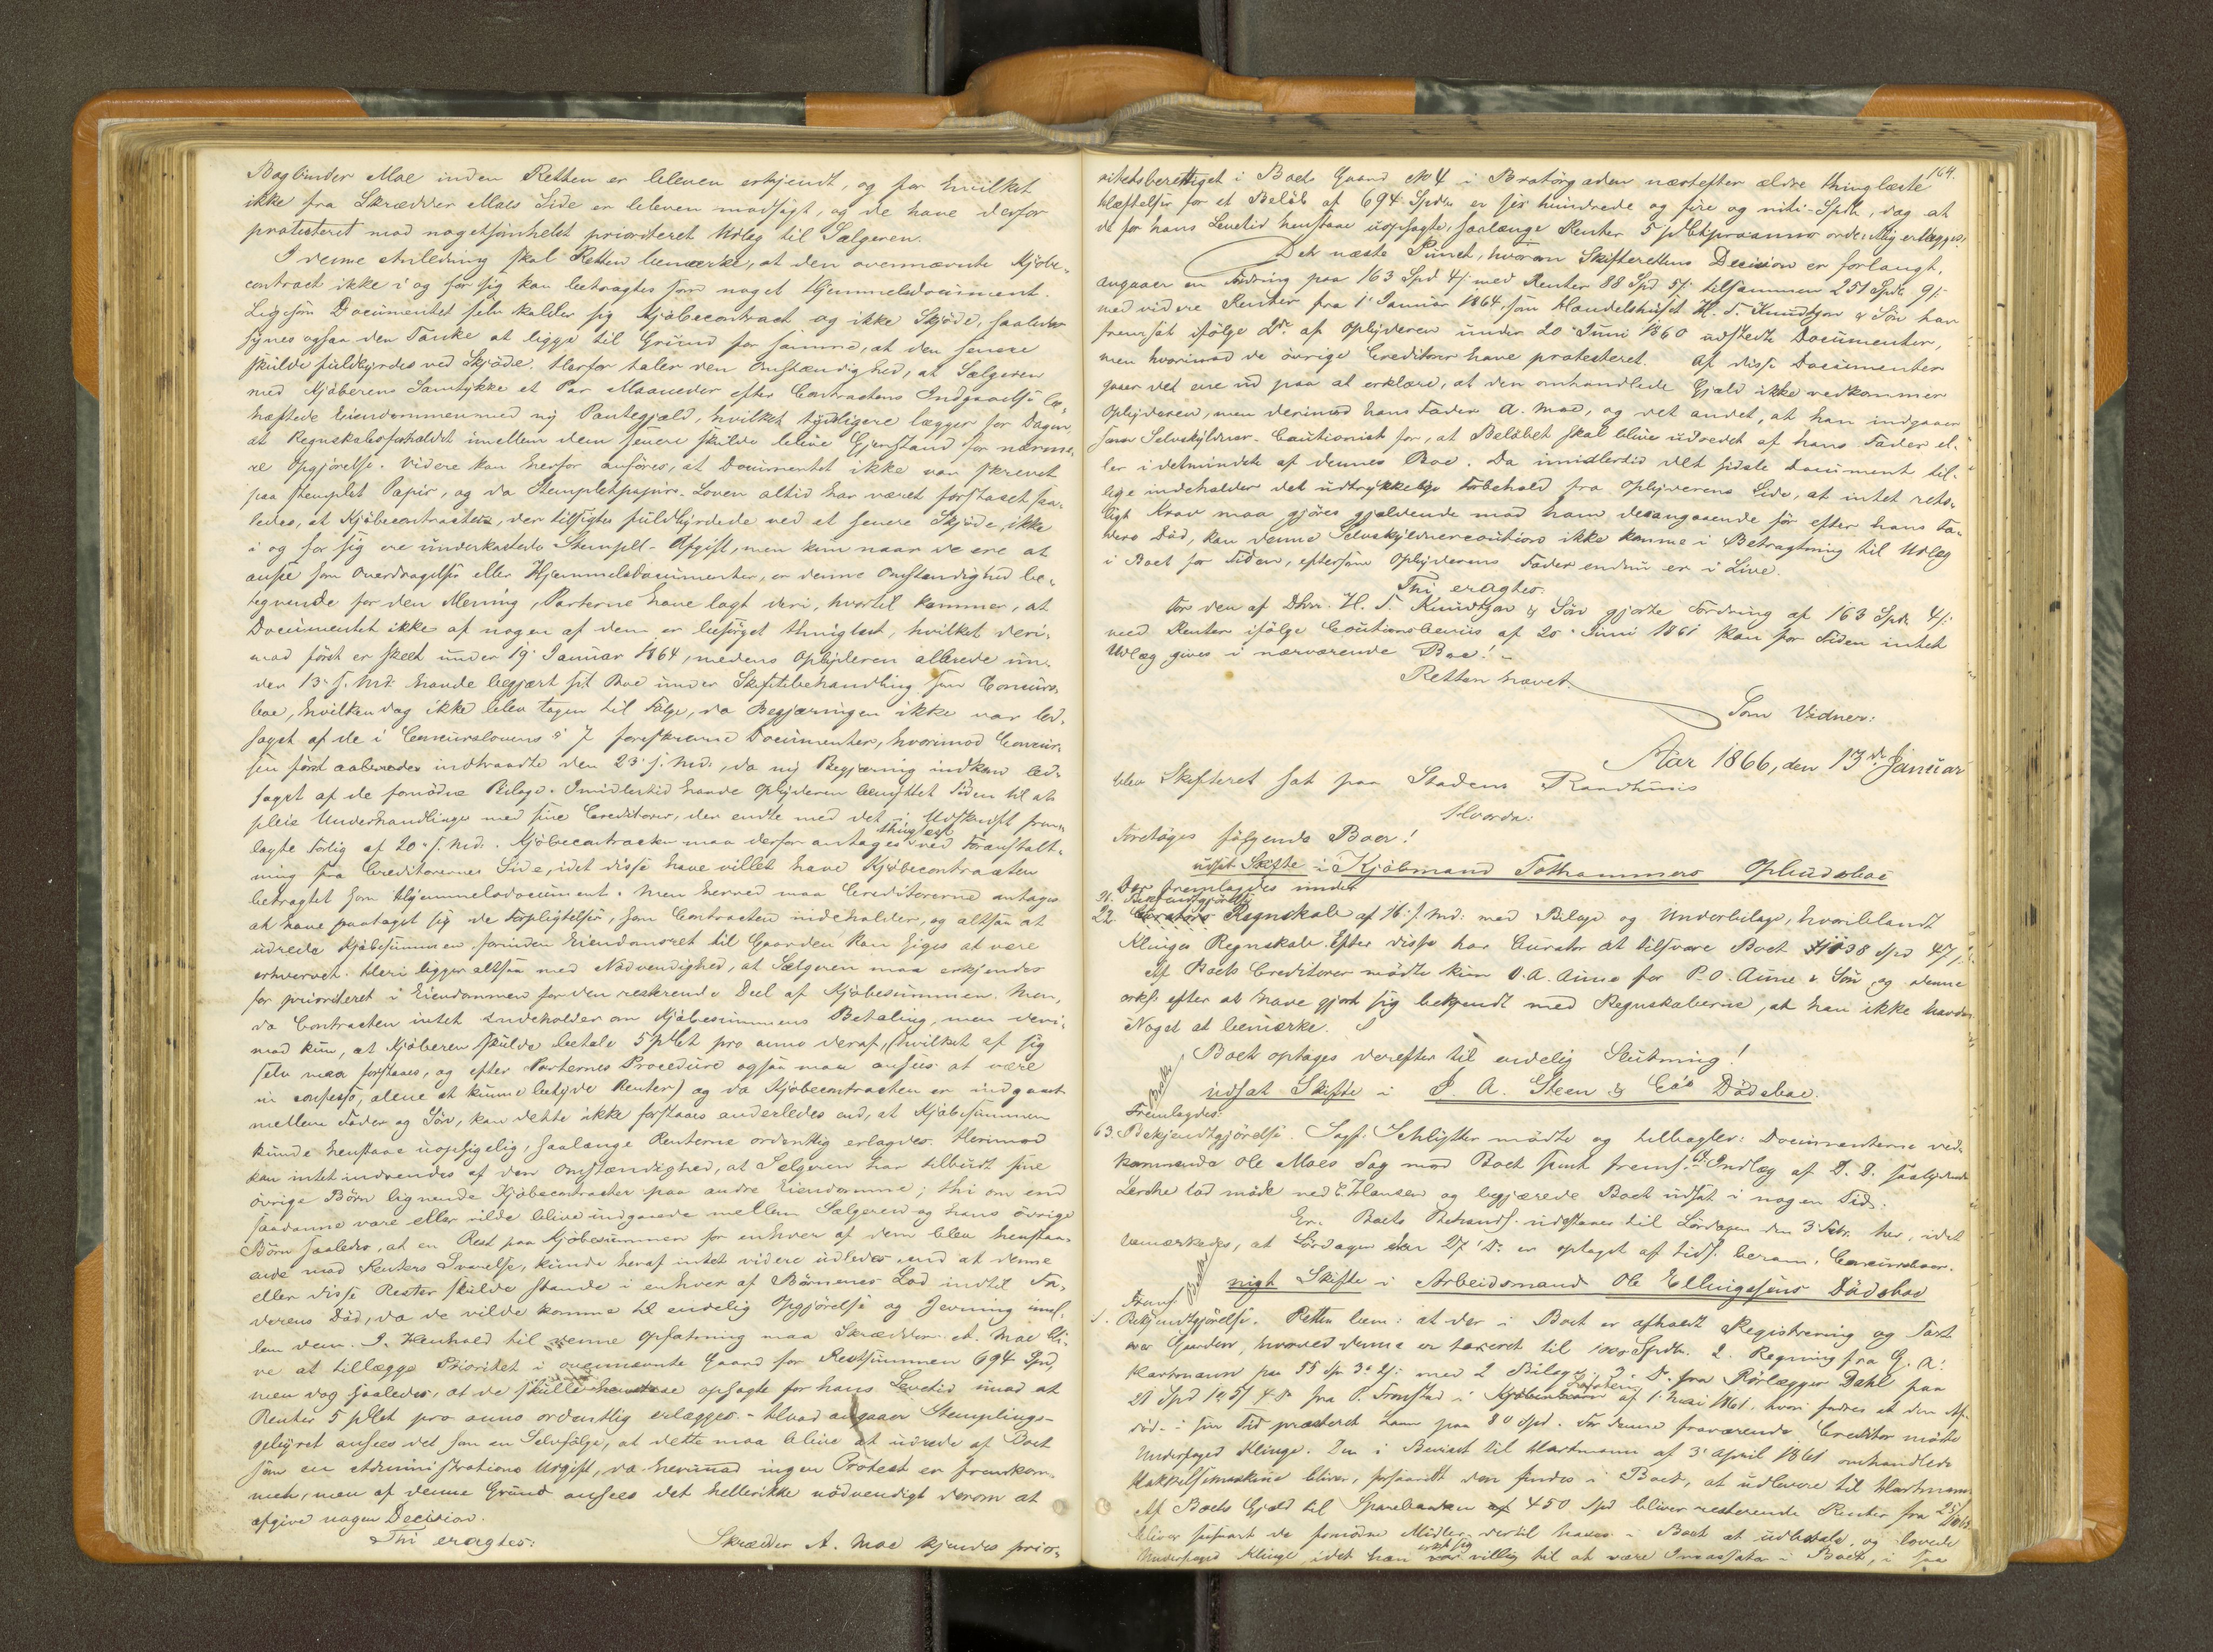 Bogbinder Moe inden Retten er bleven erkjendt, og for hvilket
ikke fra Skrædder Moes Side er bleven modsagt, og de have derfor
protesteret mod nogetsomhelst prioriteret Udlæg til Sælgeren.
I denne Anledning skal Retten bemærke, at den ovennævnte Kjøbe-
contract ikke i og for sig kan betragtes som noget Hjemmelsdocument.
Ligesom Documentet selv kalder sig Kjøbecontract og ikke Skjøde, saaledes
synes ogsaa den Tanke at ligge til Grund for samme, at den senere
skulde fuldbyrdes ved Skjøde. Herfor taler den Omstændighed, at Sælgeren
med Kjøberens Samtykke et Par Maaneder efter Contractens Indgaaelse be-
hæftede Eiendommen med ny Pantegjæld, hvilket tydeligere lægger for Dagen,
at Regnskabsforholdet imellem dem senere skulde blive Gjenstand for nærme-
re Opgjørelse. Videre kan herfor anføres, at Documentet ikke var skrevet
paa stemplet Papir, og da Stempletpapirs-Loven altid har været forstaaet saa-
ledes, at Kjøbecontracter, der tilsigtes fuldbyrdede ved et senere Skjøde, ikke
i og for sig ere underkastede Stempel-Afgift, men kun naar de ere at
ansee som Overdragelses eller Hjemmelsdocumenter, er denne Omstændighed be-
tegnende for den Mening, Parterne have lagt deri, hvortil kommer, at
Documentet ikke af nogen af dem er besørget thinglæst, hvilket deri-
mod først er skeet under 19' Januar 1864, medens Opbyderen allerede un-
der 13' s. Md. havde begjært sit Boe under Skiftebehandling som Concurs-
boe, hvilken dog ikke blev tagen til Følge, da Begjæringen ikke var led-
saget af de i Concurslovens § 7 foreskrevne Documenter, hvorimod Concur-
sen først aabnedes indtraadte den 23' s. Md., da ny Begjæring indkom led-
saget af de fornødne Bilage. Imidlertid havde Opbyderen benyttet Tiden til at
pleie Underhandlinger med sine Creditorer, der endte med det i Udskrift frem-
lagte Forlig af 20' s. Md. Kjøbecontracten maa derfor antages thinglæst ved Foranstalt-
ning fra Creditorernes Side, idet disse have villet have Kjøbecontracten
betragtet som Hjemmelsdocument. Men herved maa Creditorerne antages
at have paataget sig de Forpligtelser, som Contracten indeholder, og altsaa at
udrede Kjøbesummen forinden Eiendomsret til Gaarden kan siges at være
erhvervet. Heri ligger altsaa med Nødvendighed, at Sælgeren maa erkjendes
for prioriteret i Eiendommen for den resterende Deel af Kjøbesummen. Men,
da Contracten intet indeholder om Kjøbesummens Betaling, men deri-
mod kun, at Kjøberen skulde betale 5 pCt pro anno deraf, (hvilket af sig
selv maa forstaaes, og efter Parternes Procedure ogsaa maa ansees at være
in confesso, alene at kunne betyde Renter) og da Kjøbecontracten er indgaaet
mellem Fader og Søn, kan dette ikke forstaaes anderledes end, at Kjøbesummen
kunde henstaae uopsigelig, saalænge Renterne ordentlig erlagdes. Herimod
kan intet indvendes af den Omstændighed, at Sælgeren har tilbudt sine
øvrige Børn lignende Kjøbecontracter paa andre Eiendomme; thi om end
saadanne vare eller vilde blive indgaaede mellem Sælgeren og hans øvrige
Børn saaledes, at en Rest paa Kjøbesummen for enhver af dem blev henstaa-
ende mod Renters Svarelse, kunde heraf intet videre udledes, end at denne
eller disse Rester skulde stande i enhver af Børnenes Lod indtil Fa-
derens Død, da de vilde komme til endelig Opgjørelse og Jevning imel-
lem dem. I Henhold til denne Opfatning maa Skrædder A. Moe bli-
ve at tillægge Prioritet i ovennævnte Gaard for Restsummen 694 Spd,
men dog saaledes, at de skulle henstaae opsagte for hans Levetid imod at
Renter 5 pCt pro anno ordentlig erlægges. - Hvad angaaer Stemplings-
gebyret ansees det som en Selvfølge, at dette maa blive at udrede af Boet
som en Administrations Udgift, da herimod ingen Protest er fremkom-
men, men af denne Grund ansees det hellerikke nødvendigt derom at
afgive nogen Decision.
Thi eragtes:
Skrædder A. Moe kjendes prior-
164.
ritetsberettiget i Boets Gaard No 4 i Bratørgaden næstefter ældre thinglæste
Hæftelser for et Beløb af 694 Spdlr er sex hundrede og fire og niti Spdlr, dog at
de for hans Levetid henstaae uopsagte, saalænge Renter 5 pCt pro anno ordentlig erlægges.
Det næste Punct, hvorom Skifterettens Decision er forlangt,
angaaer en Fordring paa 163 Spd 4 ß med Renter 88 Spd 5 ß tilsammen 251 Spdlr 9 ß
med videre Renter fra 1' Januar 1864, som Handelshuset H. T. Knudtzon & Søn har
fremsat ifølge 2de af Opbyderen under 20' Juni 1860 udstedte Documenter,
men hvorimod de øvrige Creditorer have protesteret. Af disse Documenter
gaaer det ene ud paa at erklære, at den omhandlede Gjæld ikke vedkommer
Opbyderen, men derimod hans Fader A. Moe, og det andet, at han indgaaer
som Selvskyldner-Cautionist for, at Beløbet skal blive udredet af hans Fader el-
ler i detmindste af dennes Boe. Da imidlertid det sidste Document til-
lige indeholder det udtrykkelige Forbehold fra Opbyderens Side, at intet rets-
ligt Krav maa gjøres gjældende mod ham desangaaende før efter hans Fa-
ders Død, kan denne Selvskyldnercaution ikke komme i Betragtning til Udlæg
i Boet for Tiden, eftersom Opbyderens Fader endnu er i Live.
Thi eragtes.
For den af Dhrr. H. T. Knudtzon & Søn gjorte Fordring af 163 Spdr 4 ß
med Renter ifølge Cautionsbeviis af 20' Juni 1861 kan for Tiden intet
Udlæg gives i nærværende Boe! -
Retten hævet.
Som Vidner:
Aar 1866, den 13de Januar
blev Skifteret sat paa Stadens Raadhuus
Hvorda:
Foretoges følgende Boer!
udsat Skifte i Kjøbmand Tothammers Opbudsboe
Der fremlagdes under
21. Bekjendtgjørelse
22. Curators Regnskab af 16' s. Md: med Bilage og Underbilage, hvoriblandt
Klinges Regnskab. Efter disse har Curator at tilsvare Boet 38 Spd
Af Boets Creditorer mødte kun O. A. Aune for P. O. Aune & Søn og denne
erkl. efter at have gjort sig bekjendt med Regnskaberne, at han ikke havde
Noget at bemærke.
Boet optages derefter til endelig Slutning!
udsat Skifte i J. A. Steen & Coes Dødsboe.
Fremlagdes:
63. Bekjendtgjørelse. Sagf. Schlytter mødte og tilbagelev: Documenterne ved-
kommende Ole Moes Sag mod Boet samt frems. Indlæg af D. D. saalydende
Lerche lod møde ved C. Hansen og begjærede Boet udsat i nogen Tid.
Er. Boets Behandl. udstaaer til Lørdagen den 3 Febr. her, idet
bemærkedes, at Lørdagen den 27' Ds. er optaget af tidl. beram. Concursboer.
nyt Skifte i Arbeidsmand Ole Ellingsens Dødsboe
Freml.
1. Bekjendtgjørelse. Retten bem: at der i Boet er afholdt Registrering og Taxt
over Gaarden, hvorved denne er taxeret til 1000 Spdlr. 2. Regning fra G. A.
Hartmann paa 55 Sp. 3 2 ß med 2 Bilag, 3. Do. fra Rørlægger Dahl paa
21 Spd fra P. Fronstad i af 1' Mai 1861, hvori fordres et den Af-
død. i sin Tid præsteret Laan paa 80 Spd. For denne fraværende Creditor mødte
Underfoged Klinge. Den i Beviset til Hartmann af 3' April 1861 omhandlede
Hakkelsemaskine bliver, forsaavidt den findes i Boet, at udlevere til Hartmann.
Af Boets Gjæld til Sparebanken 450 Spd bliver resterende Renter fra
bliver saasnart de fornødne Midler dertil haves i Boet at udbetale, og lovede
Underfoged Klinge idet han erkl sig villig til at være Incassator i Boet, i saa